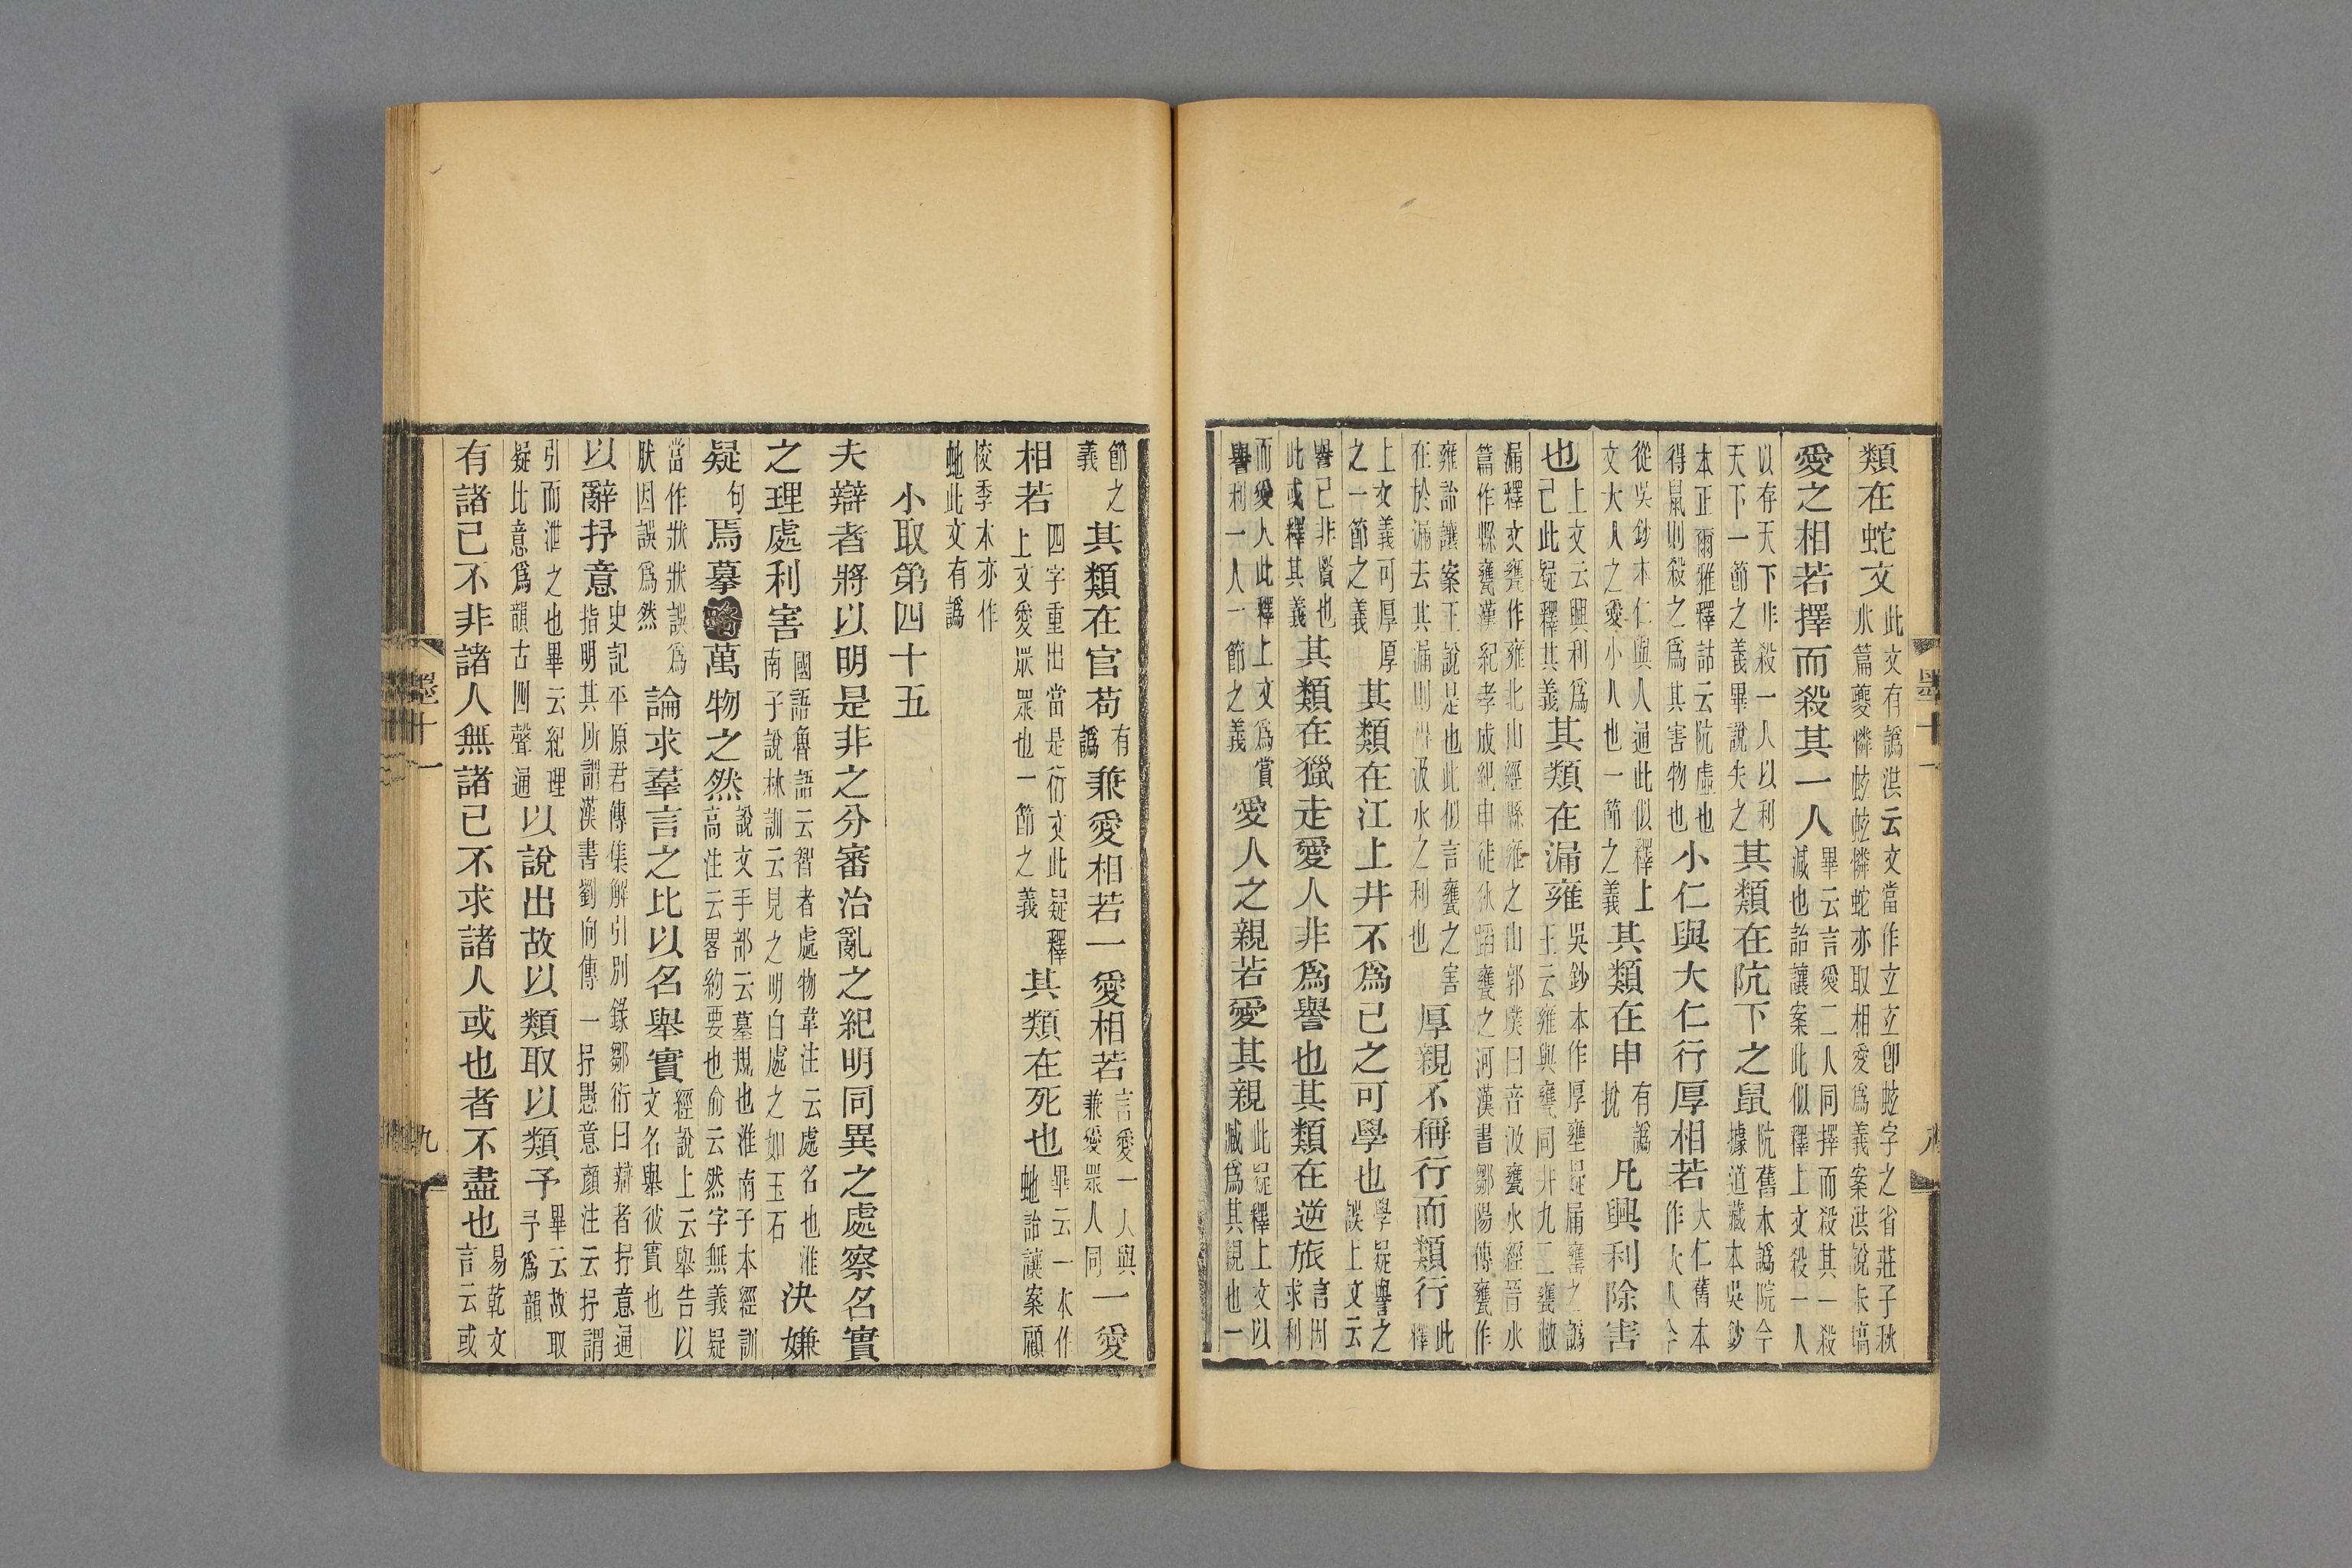 類在蛇文
此文有譌洪云文當作立立卽蚿字之省莊子秋
水篇夔憐蚿蚿憐蛇亦取相愛爲義案洪說未塙
愛之相若擇而殺其一人
畢云言愛二人同擇而殺其一殺
減也詒讓案此似釋上文殺一人
以存天下非殺一人以利
天下一節之義畢說失之
其類在阬下之鼠
阬舊本譌院今
據道藏本吳鈔
本正爾雅釋詁云阬虛也
得鼠則殺之爲其害物也
小仁與大仁行厚相若
大仁舊本
作大人今
從吳鈔本仁與人通此似釋上
文大人之愛小人也一節之義
其類在申
有譌
挩
凡興利除害
也
上文云興利爲
己此疑釋其義
其類在漏雍
吳鈔本作厚壅疑屚罋之譌
王云雍與甕同井九二甕敝
漏釋文甕作雍北山經縣雍之山郭璞曰音汲甕水經晉水
篇作縣甕漢紀孝成紀申徒狄蹈甕之河漢書鄒陽傳甕作
雍詒讓案王說是也此似言甕之害
在於漏去其漏則得汲水之利也
厚親不稱行而類行
此
釋
上文義可厚厚
之一節之義
其類在江上井不爲己之可學也
學疑譽之
誤上文云
譽己非賢也
此或釋其義
其類在獵走愛人非爲譽也其類在逆旅
言因
求利
而愛人此釋上文爲賞
譽利一人一節之義
愛人之親若愛其親
此疑釋上文以
臧爲其親也一
墨十一
八
節之
義
其類在官苟
有
譌
兼愛相若一愛相若
言愛一人與
兼愛眾人同
一愛
相若
四字重出當是衍文此疑釋
上文愛眾眾也一節之義
其類在死也
畢云一本作
虵詒讓案顧
校季本亦作
虵此文有譌
小取第四十五
夫辯者將以明是非之分審治亂之紀明同異之處察名實
之理處利害
國語魯語云智者處物韋注云處名也淮
南子說林訓云見之明白處之如玉石
決嫌
疑
句
焉摹略萬物之然
說文手部云摹規也淮南子本經訓
高注云畧約要也俞云然字無義疑
當作狀狀誤爲
肰因誤爲然
論求羣言之比以名舉實
經說上云舉告以
文名舉彼實也
以辭抒意
史記平原君傳集解引別錄鄒衍曰辯者抒意通
指明其所謂漢書劉向傳一抒愚意顏注云抒謂
引而泄之也畢云紀理
疑比意爲韻古四聲通
以說出故以類取以類予
畢云故取
予爲韻
有諸己不非諸人無諸己不求諸人或也者不盡也
易乾文
言云或
墨十一
九